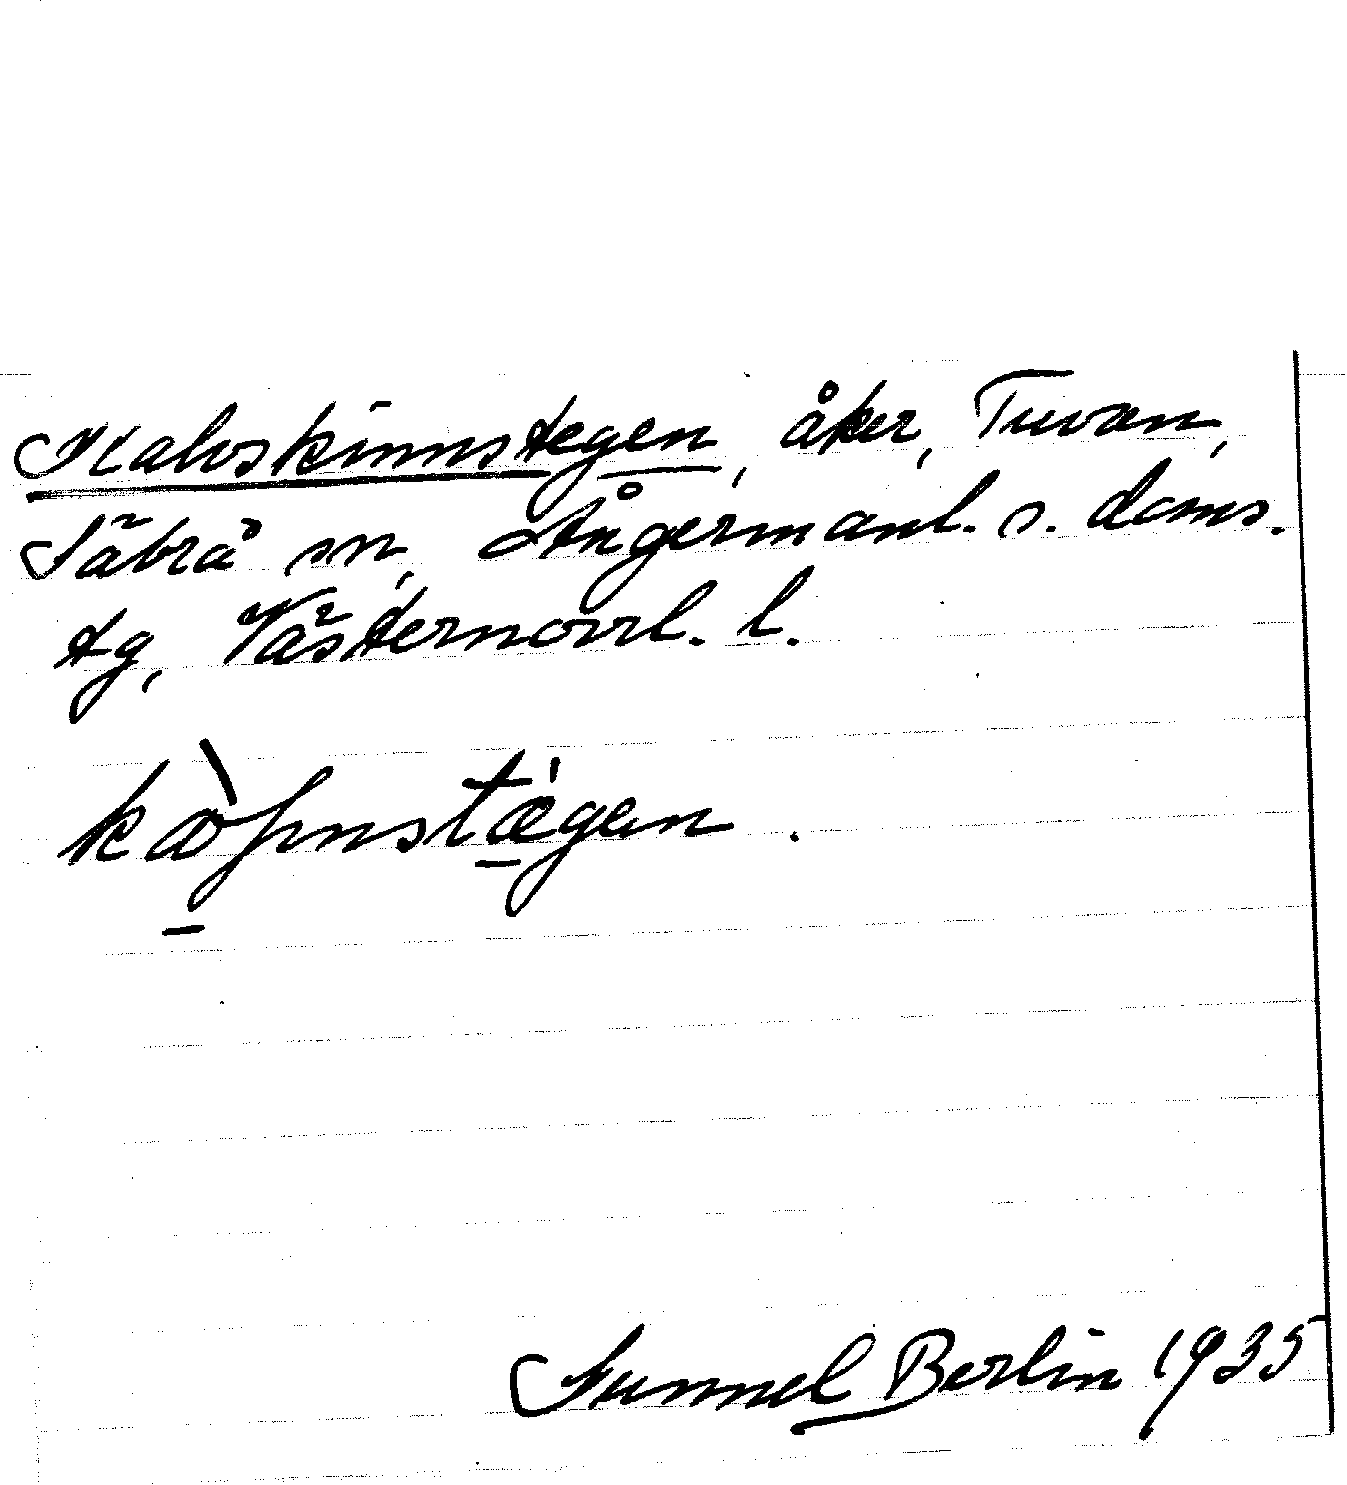 Kalvskinnstegen, åker, Tuvan,
Säbrå sn, Ångermanl. s. doms.
tg, Västernorrl. l.
Gunnel Berlin 1935